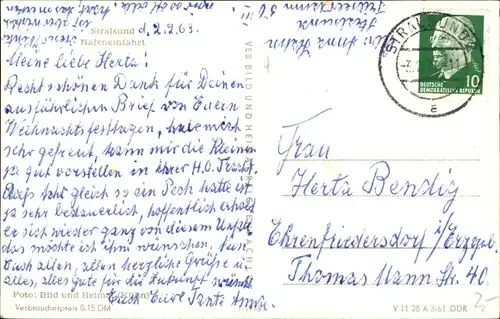 Stralsund d. 2.2.63.
Hafeneinfahrt
Meine liebe Herta!
Recht schönen Dank für Deinen
ausführlichen Brief von Euern
Weihnachtsfesttagen, habe mich
sehr gefreut, kann mir die Kleinen
ja gut vorstellen in ihrer H.O. Tracht.
Daß gleich so ein Pech hatte ist
ja sehr bedauerlich, hoffentlich erholt
er sich wieder ganz von diesem Unfall
das möchte ich ihm wünschen. Nun
Euch allen, allen herzliche Grüße u.
alles, alles Gute für die Zukunft wünscht
Euch Eure Tante Anna.
Foto: Bild und Heimat
Verbraucherpreis 0.15 DM
VEB BILD UND HEIMAT REICHENBACH
STRALSUND
a
10
DEUTSCHE
DEMOKRATISCHE REPUBLIK
Frau
Herta Bendig
Ehrenfriedersdorf i/Erzgeb.
Thomas Mann Str. 40.
V 11 28 A 3/61 DDR